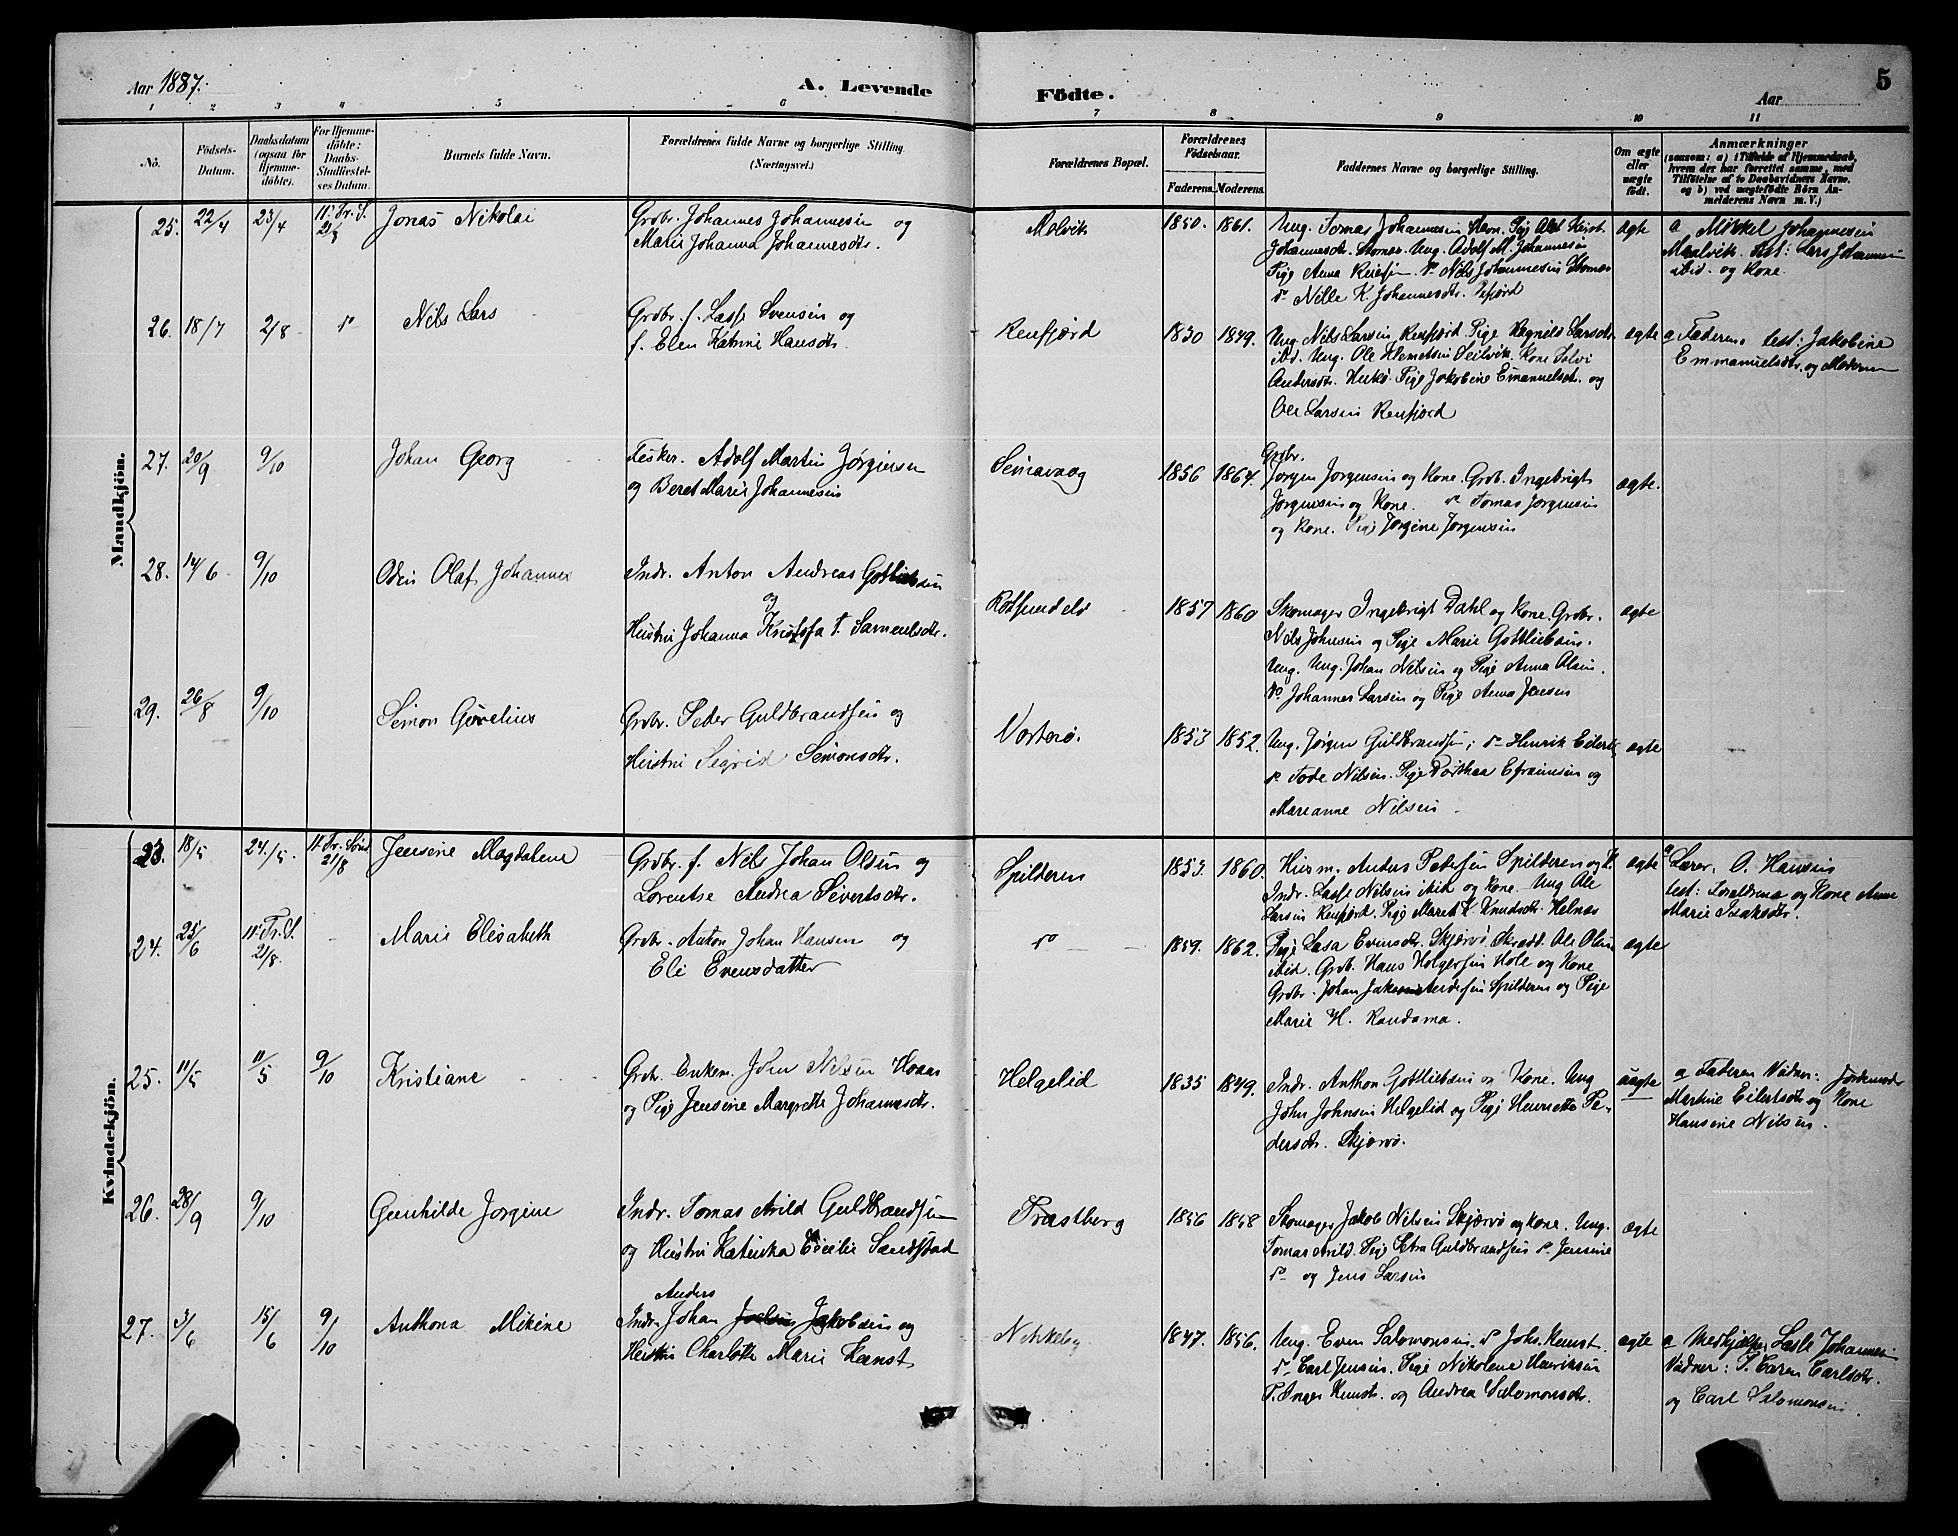 Aar 1887.
A. Levende Fødte.
Aar
5
1 2 3 4 5 6 7 8 9 10 11
No.
Födsels-Datum.
Daabsdatum (ogsaa for Hjemme-döbte).
For Hjemme-döbte: Daabs-Stadfæstel-ses Datum.
Barnets fulde Navn.
Forældrenes fulde Navne og borgerlige Stilling. (Næringsvei.)
Forældrenes Bopæl.
Forældrenes Födselsaar.
Faderens. Moderens.
Faddernes Navne og borgerlige Stilling.
Om ægte eller uægte födt.
Anmærkninger
(saasom: a) i Tilfælde af Hjemmedaab, hvem der har forrettet samme, med Tilföielse af to Daabsvidners Navne, og b) ved uægtefödte Börn An-melderens Navn m. V.)
Mandkjön.
25. 22/4 23/4 11. Tr. S. 21/8 Jonas Nikolai
Grbr. Johannes Johannesen og
Marie Johanna Johannesdtr.
Molvik 1850. 1861.
Ung. Tomas Johannesen
Johannesdtr. Ung. Adolf M. Johannesen
Pige Anna Nils Johannesen
do Nille K. Johannesdtr.
ægte
a Mikkel Johannesen
Maalvik. test: Lars Johannesen
ibid. og Kone.
26. 18/7 2/8 do Nils Lars
Grbr. f. Lasse Svensen og
f. Elen Katrine Hansdtr.
Reinfjord 1830 1849.
Ung. Nils Larsen Reinfjord Pige Ragnild Larsdtr.
ibd. Ung. Ole Klemetsen Seilvik. Kone
Andersdtr. Pige Jakobine Emanuelsdtr. og
Ole Larsen Reinfjord
ægte
a Faderen. test: Jakobine
Emmanuelsdtr. og Moderen
27. 20/9 9/10 Johan Georg
Fisker. Adolf Martin Jørgensen
og Beret Marie Johannesen
1856 1864.
Grbr.
Jørgen Jørgensen og Kone. Grb. Ingebrigt
Jørgensen og Kone. do Tomas Jørgensen
og Kone. Pige Jørgine Jørgensen
ægte.
28. 14/6 9/10 Odin Olaf Johannes
Indr. Anton Andreas Gottliebsen
og
Hustru Johanna f. Samuelsdtr.
1857 1860
Skomager Ingebrigt Dahl og Kone. Grbr.
Nils Johnsen og Pige Marie Gottliebsen.
Ung. Ung. Johan Nilsen og Pige Anna Olsen.
do Johannes Larsen og Pige Anna Jensen
ægte
29. 26/8 9/10 Simon
Grbr. Peder Guldbrandsen og
Hustru Sigrid Simonsdtr.
Vorterø. 1853 1852.
Ung. Jørgen Guldbrandsen; do Henrik
do Tode Nilsen. Pige Dorthea Efraimsen og
Marianne Nilsen
ægte
Kvindekjön.
23. 18/5 24./5. 11. Tr. Sönd 21/8 Jensine Magdalene
Grbr. f. Nils Johan Olsen og
Lorentse Andrea Sivertsdtr.
Spilderen 1853. 1860.
Husm. Anders Pedersen Spilderen og K.
Indr. Lasse Nilsen ibid og Kone. Ung Ole
Larsen Reinfjord. Pige Maret K. Knudsdtr. Helnæs
ægte
a Lærer. O. Hansen
test: og Kone Anne
Marie Isaksdtr.
24. 25/6 11. Tr. S. 21/8. Marie Elisabeth
Grbr. Anton Johan Hansen og
Eli Evensdatter
do 1859. 1862.
Pige Evensdtr. Skjærvø. Skradd. Ole Olsen
ibid. Grb. Hans Holgersen Hole og Kone
Grbr. Johan Andersen Spilderen og Pige
Marie H.
ægte
25. 11/5 11/5 9/10 Kristiane
Grbr. Enkem. John Nilsen
og Pige Jensine Margrethe Johannesdtr.
Helgelid 1835 1849.
Indr. Anthon Gottliebsen og Kone. Ung
John Johnsen Helgelid og Pige Henriette Pe-
dersdtr. Skjærvø.
uægte
a Faderen Vidner: Jordemod
Martine Eilertsdtr og Kone
Hansine Nilsen.
26. 28/9 9/10 Gunhilde Jørgine
Indr. Tomas Arild Guldbrandsen
og Hustru Katinka Cecilie Sandstad
1856 1858
Skomager Jakob Nilsen Skjærvø og Kone. Ung.
Tomas Arild. Pige Petra Guldbrandsen do Jensine
do og Jens Larsen
ægte
27. 3/6 15/6 9/10 Anthona Mikine
Anders
Indr. Johan Jakobsen og
Hustru Charlotte Marie Kunst
Nikkeby 1847. 1856.
Ung. Even Salomonsen. do Johs. Kunst.
do Carl Jensen. Pige Nikolene Henriksen
P. Inger Kunst. og Andrea Salomonsdtr.
ægte
a Medhjælper Lasse Johannes-
Vidner: P. Caren Carlsdtr.
og Carl Salomonsen.